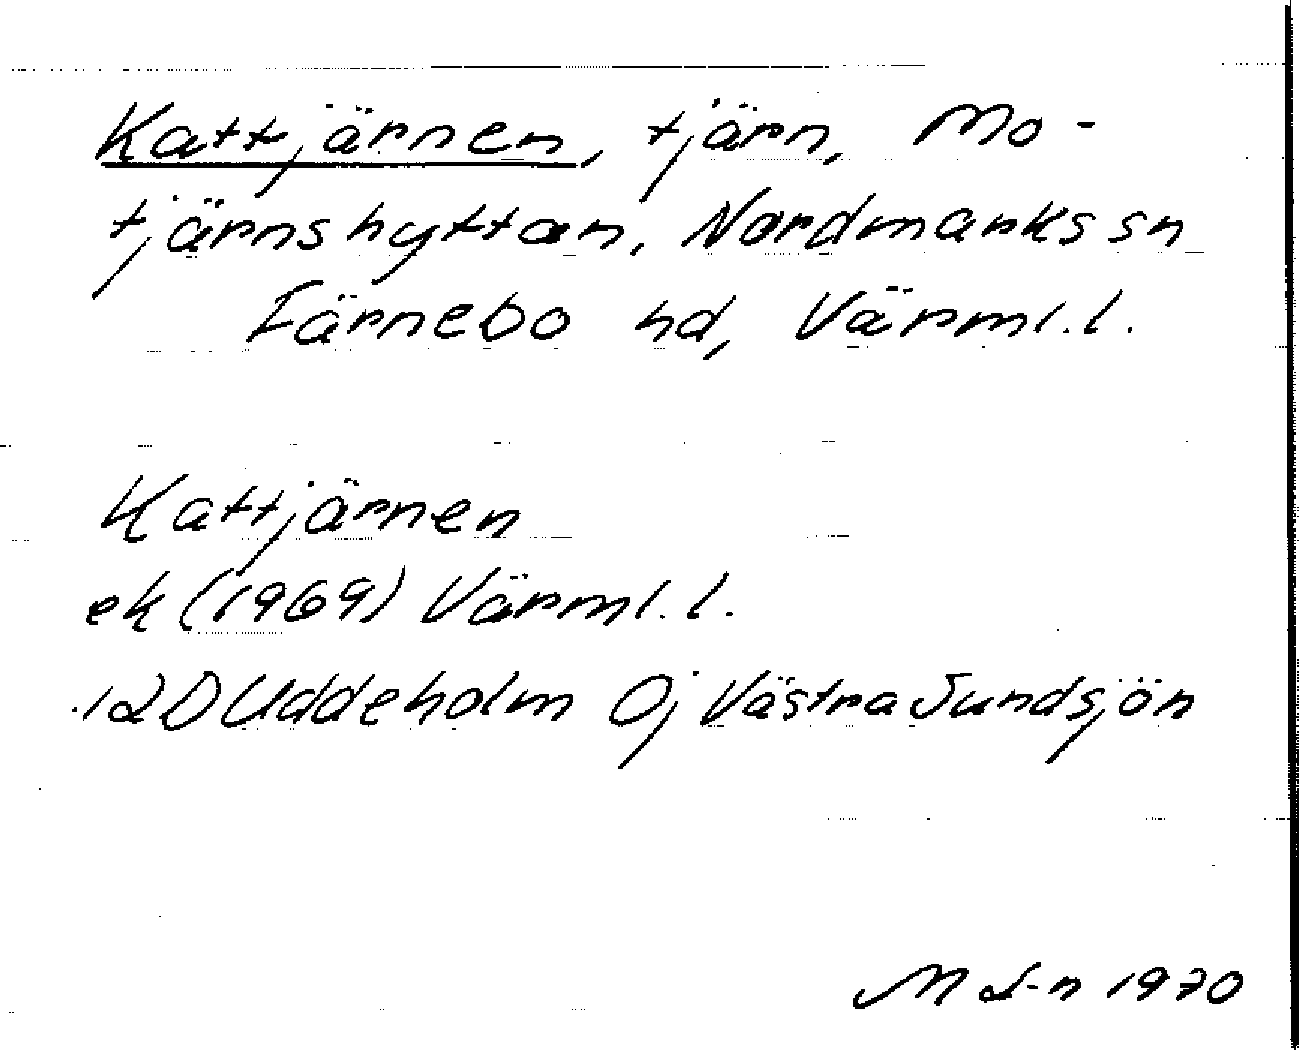 Kattjärnen, tjärn, Mo-
tjärnshyttan, Nordmarks sn
Färnebo hd, Värml. l.
Kattjärnen
ek (1969) Värml. l.
12D Uddeholm 0j Västra Sundsjön
M L-n 1970